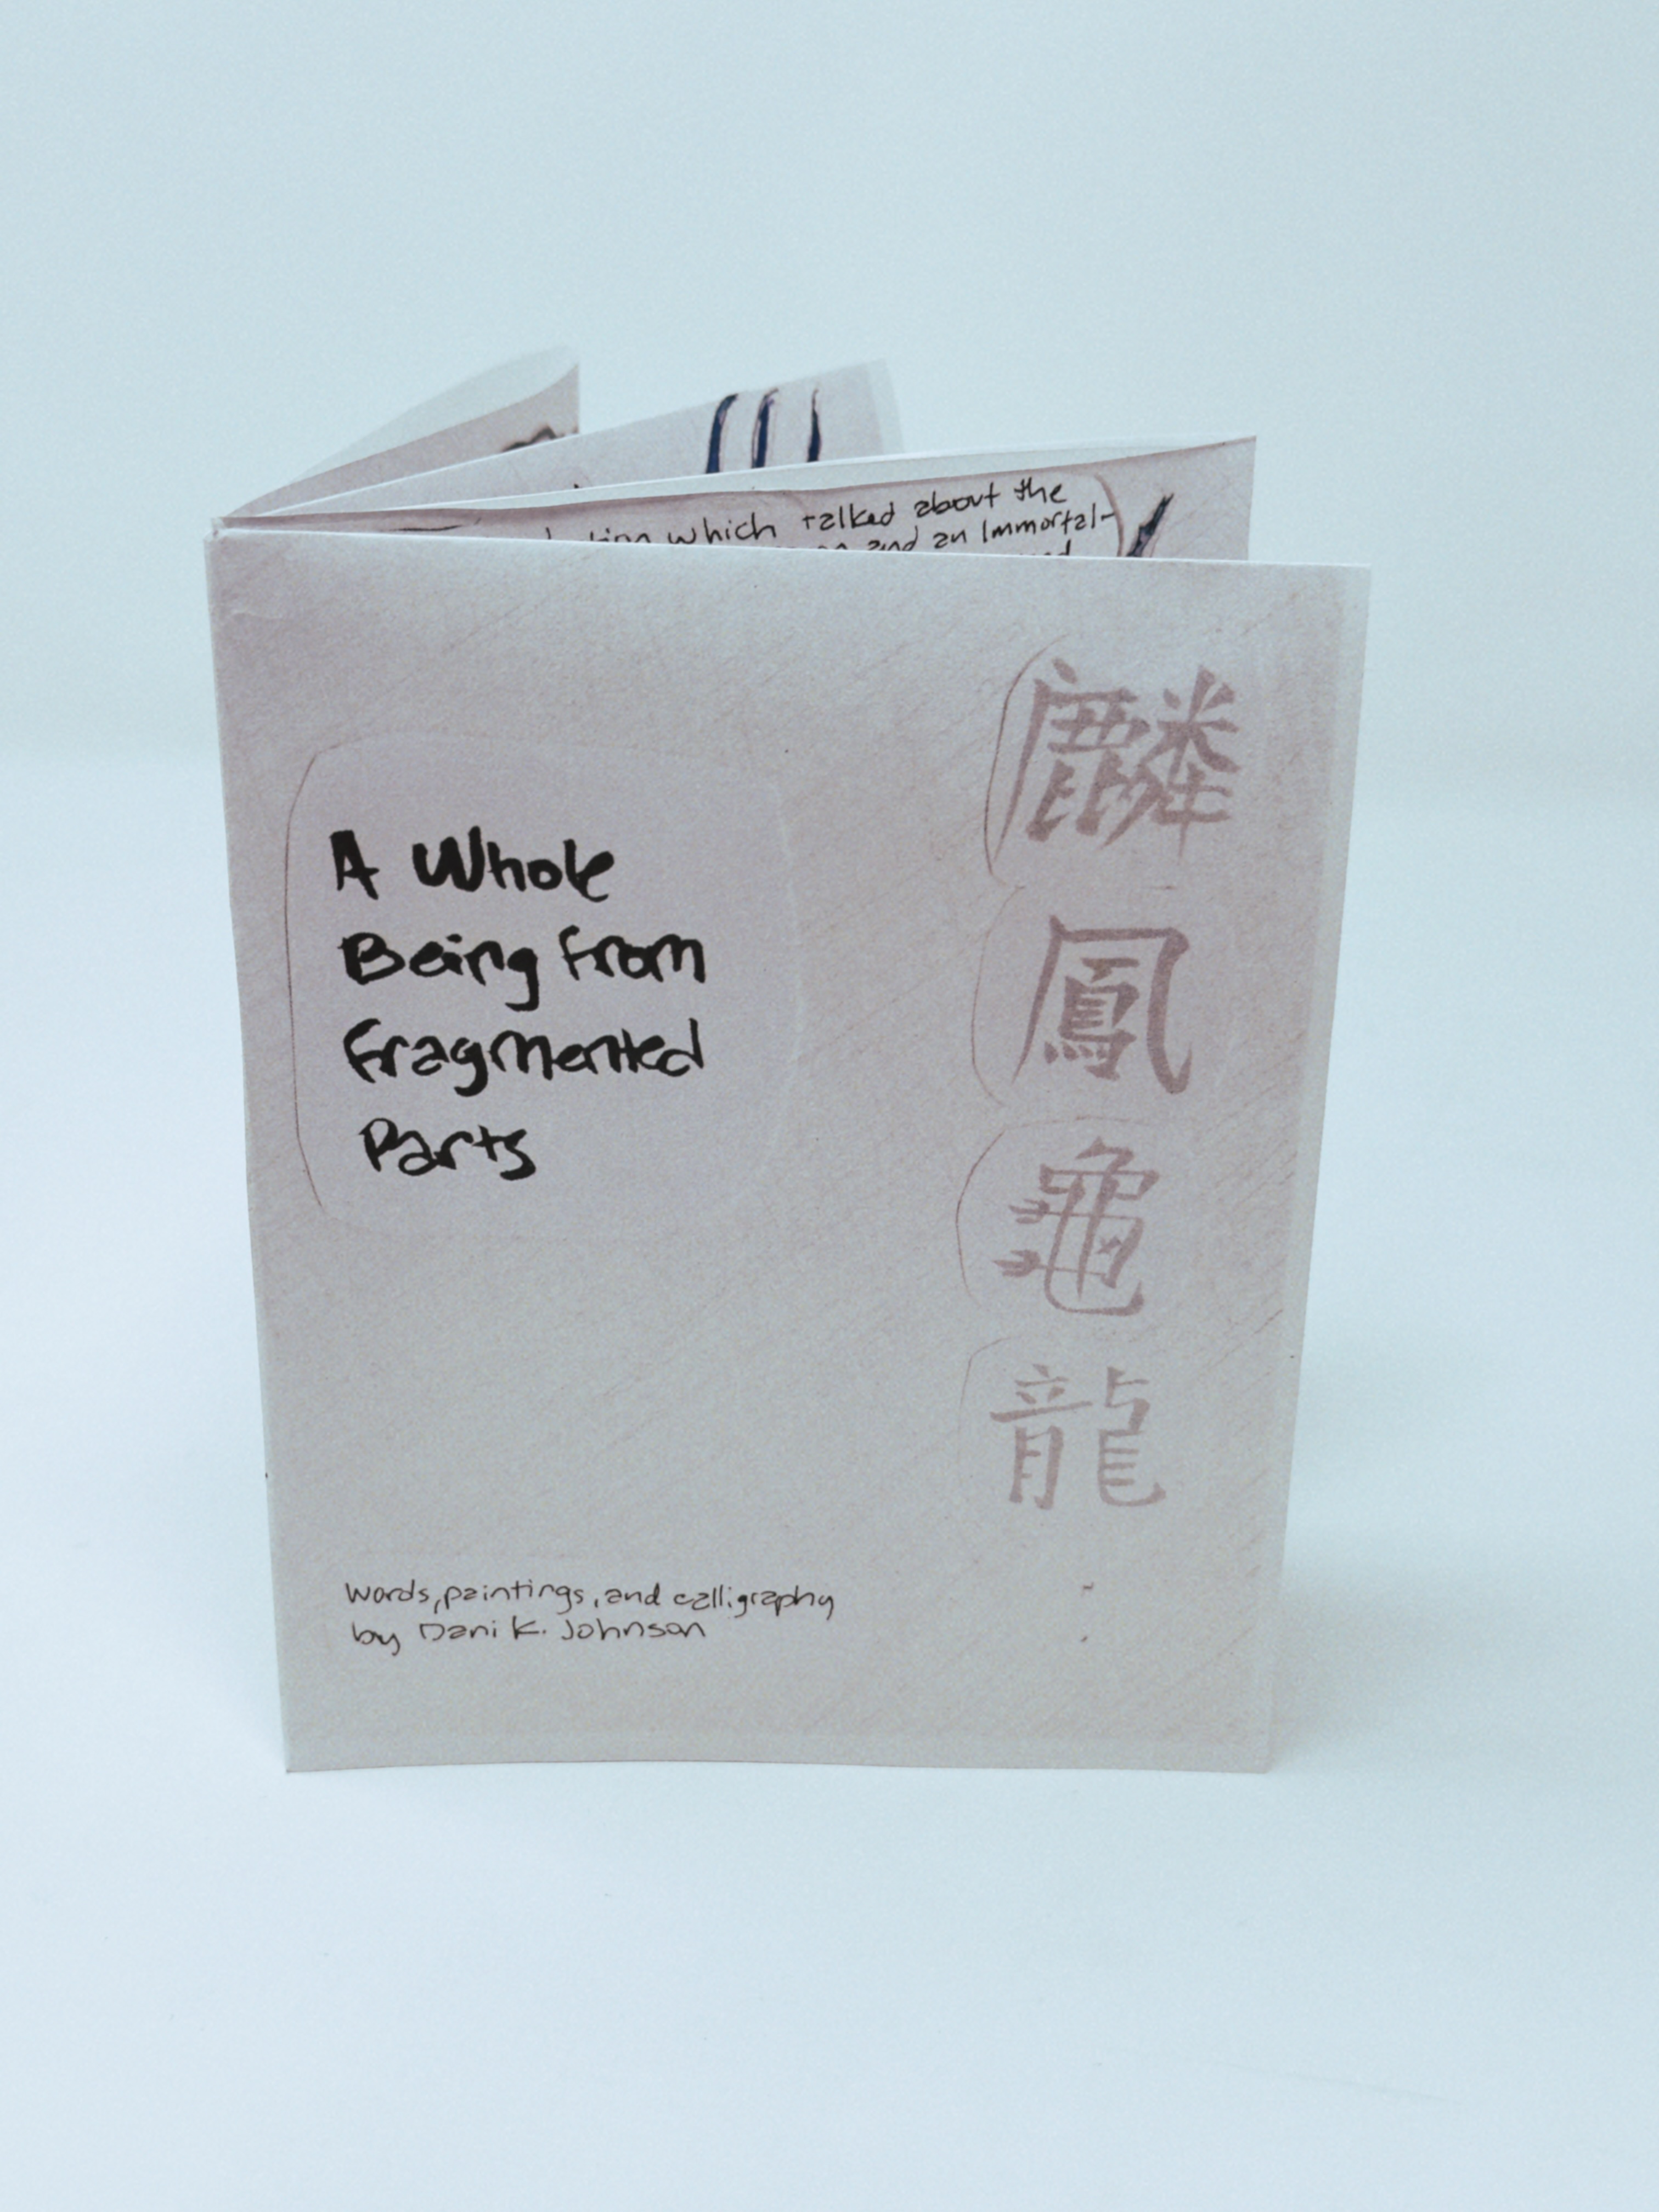 which talked about the
and an Immortal-
A Whole
Being from
Fragmented
Parts
麟
鳳
龜
龍
words, paintings, and calligraphy
by Dani K. Johnson